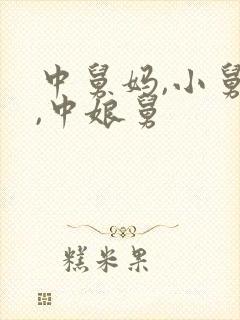 中舅妈,小舅
,中娘舅
糕米果